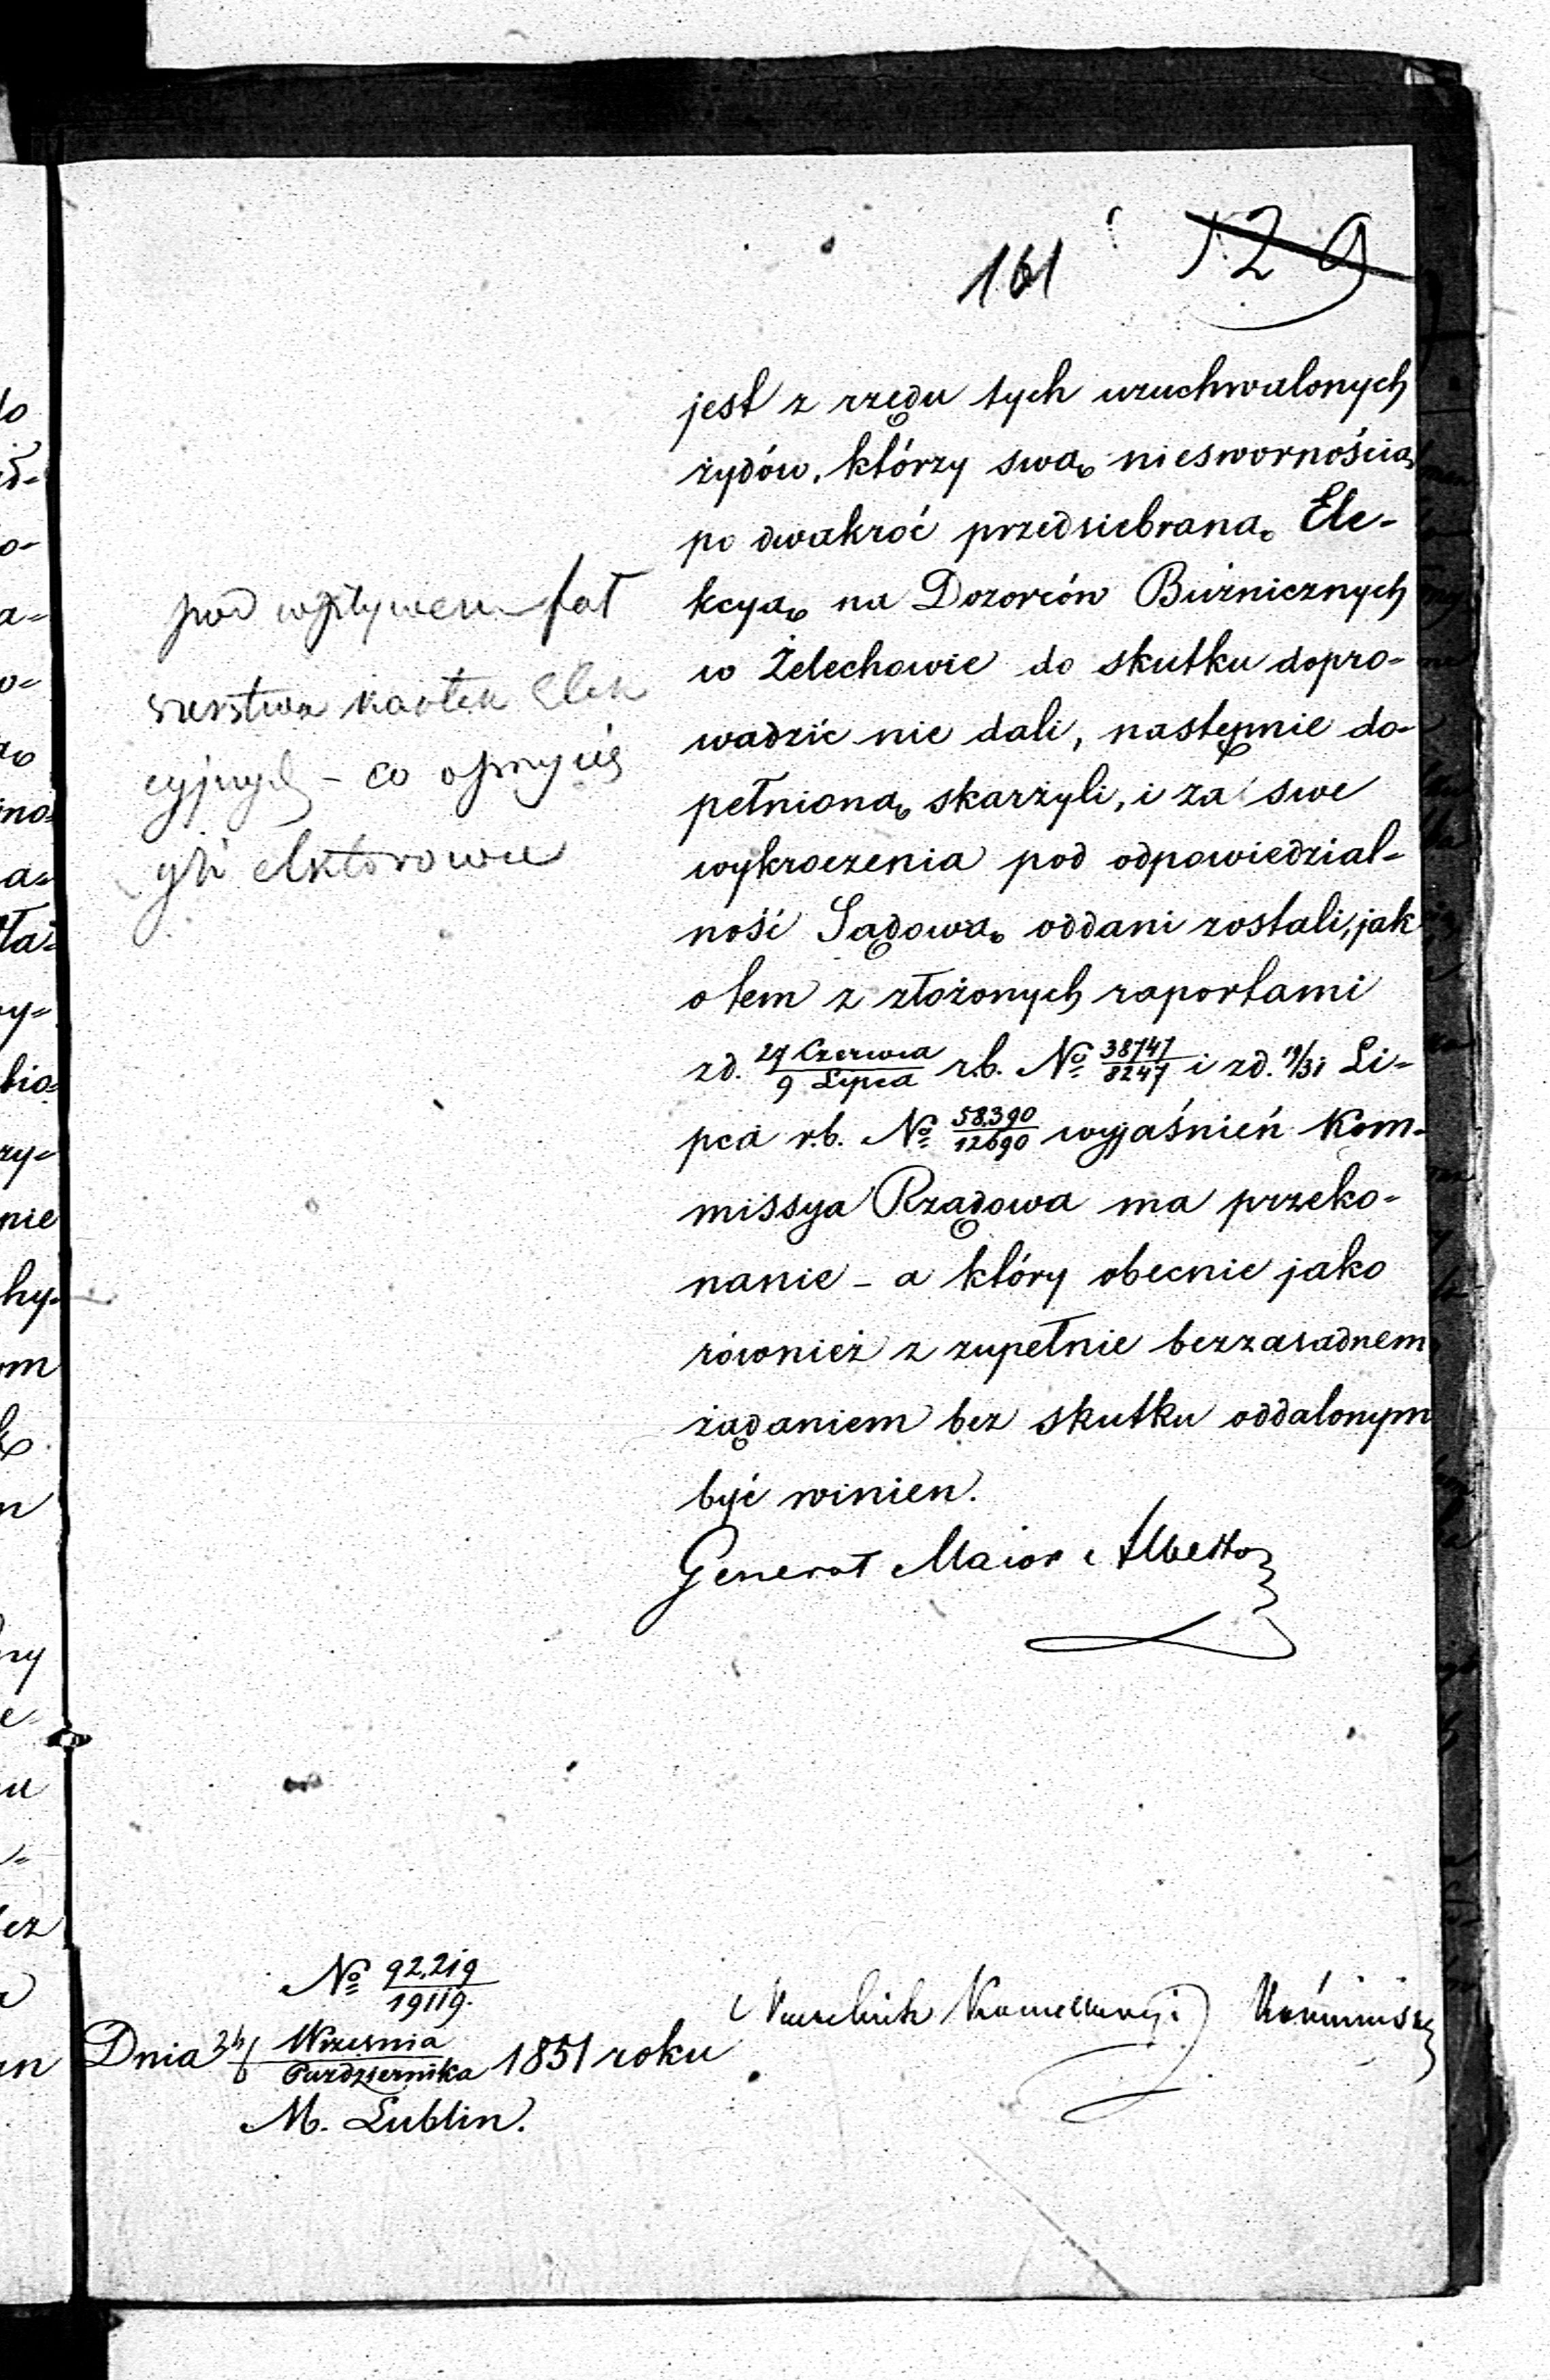 161 129
jest z rzędu tych uzuchwalonych
żydów, którzy swą nieswornością
po dwakroć przedsiebraną Ele-
kcyą na Dozorców Bużnicznych
w Żelechowie do skutku dopro-
wadzić nie dali, następnie do-
pełnioną skarżyli, i za swe
wykroczenia pod odpowiedzial-
ność Sądową oddani zostali, jak
o tem z złożonych raportami
zd. 27 Czerwca/9 Lipca r.b. No 38747/8247 i zd. 19/31 Li-
pca r.b. No 58390/12690 wyjaśnień Kom-
missya Rządowa ma przeko-
nanie - a który obecnie jako
również z zupełnie bezzasadnem
żądaniem bez skutku oddalonym
być winien.
Generał Maior Albertow
pod wpływem fał
szerstwa kartek Elek
cyjnych - co
No 92,219/19119.
Dnia 24/6 Września/Pazdziernika 1851 roku
M. Lublin.
Naczelnik Kancellaryi